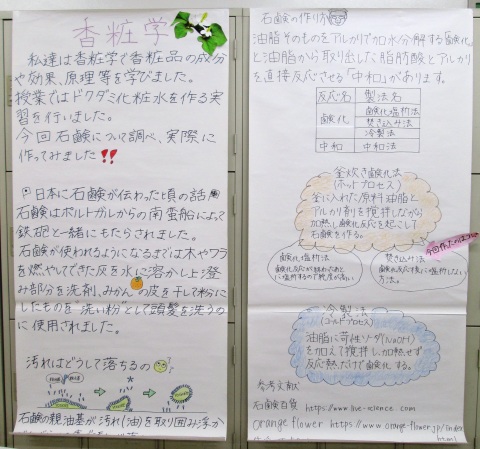 香粧学
私達は香粧学で香粧品の成分
や効果、原理等を学びました。
授業ではドクダミ化粧水を作る実
習を行いました。
今回石鹸について調べ、実際に
作ってみました!!
日本に石鹸が伝わった頃の話
石鹸はポルトガルからの南蛮船によって
鉄砲と一緒にもたらされました。
石鹸が使われるようになるまでは木やワラ
を燃やしてできた灰を水に溶かし上澄
み部分を洗剤、みかんの皮を干して粉に
したものを"洗い粉"として頭髪を洗うの
に使用されました。
汚れはどうして落ちるの
石鹸の親油基が汚れ(油)を取り囲み浮か
石鹸の作り方
油脂そのものをアルカリで加水分解する「鹸化」
と油脂から取り出した脂肪酸とアルカリ
を直接反応させる「中和」があります。
反応名 製法名
鹸化 鹸化塩析法
焚き込み法
冷製法
中和 中和法
釜炊き鹸化法
(ホットプロセス)
釜に入れた原料油脂と
アルカリ剤を撹拌しながら
加熱し鹸化反応を起こして
石鹸を作る。
今回作ったのはコレ
鹸化塩析法
鹸化反応が終わったあと
に塩析するので純度が高い
焚き込み法
鹸化反応後に塩析しない方
法。
冷製法
(コールドプロセス)
油脂に苛性ソーダ(NaOH)
を加えて撹拌し、加熱せず
反応熱だけで鹸化する。
参考文献
石鹸百貨 https://www.live-science.com
orange flower https://www.orange-flower.jp/index.
html